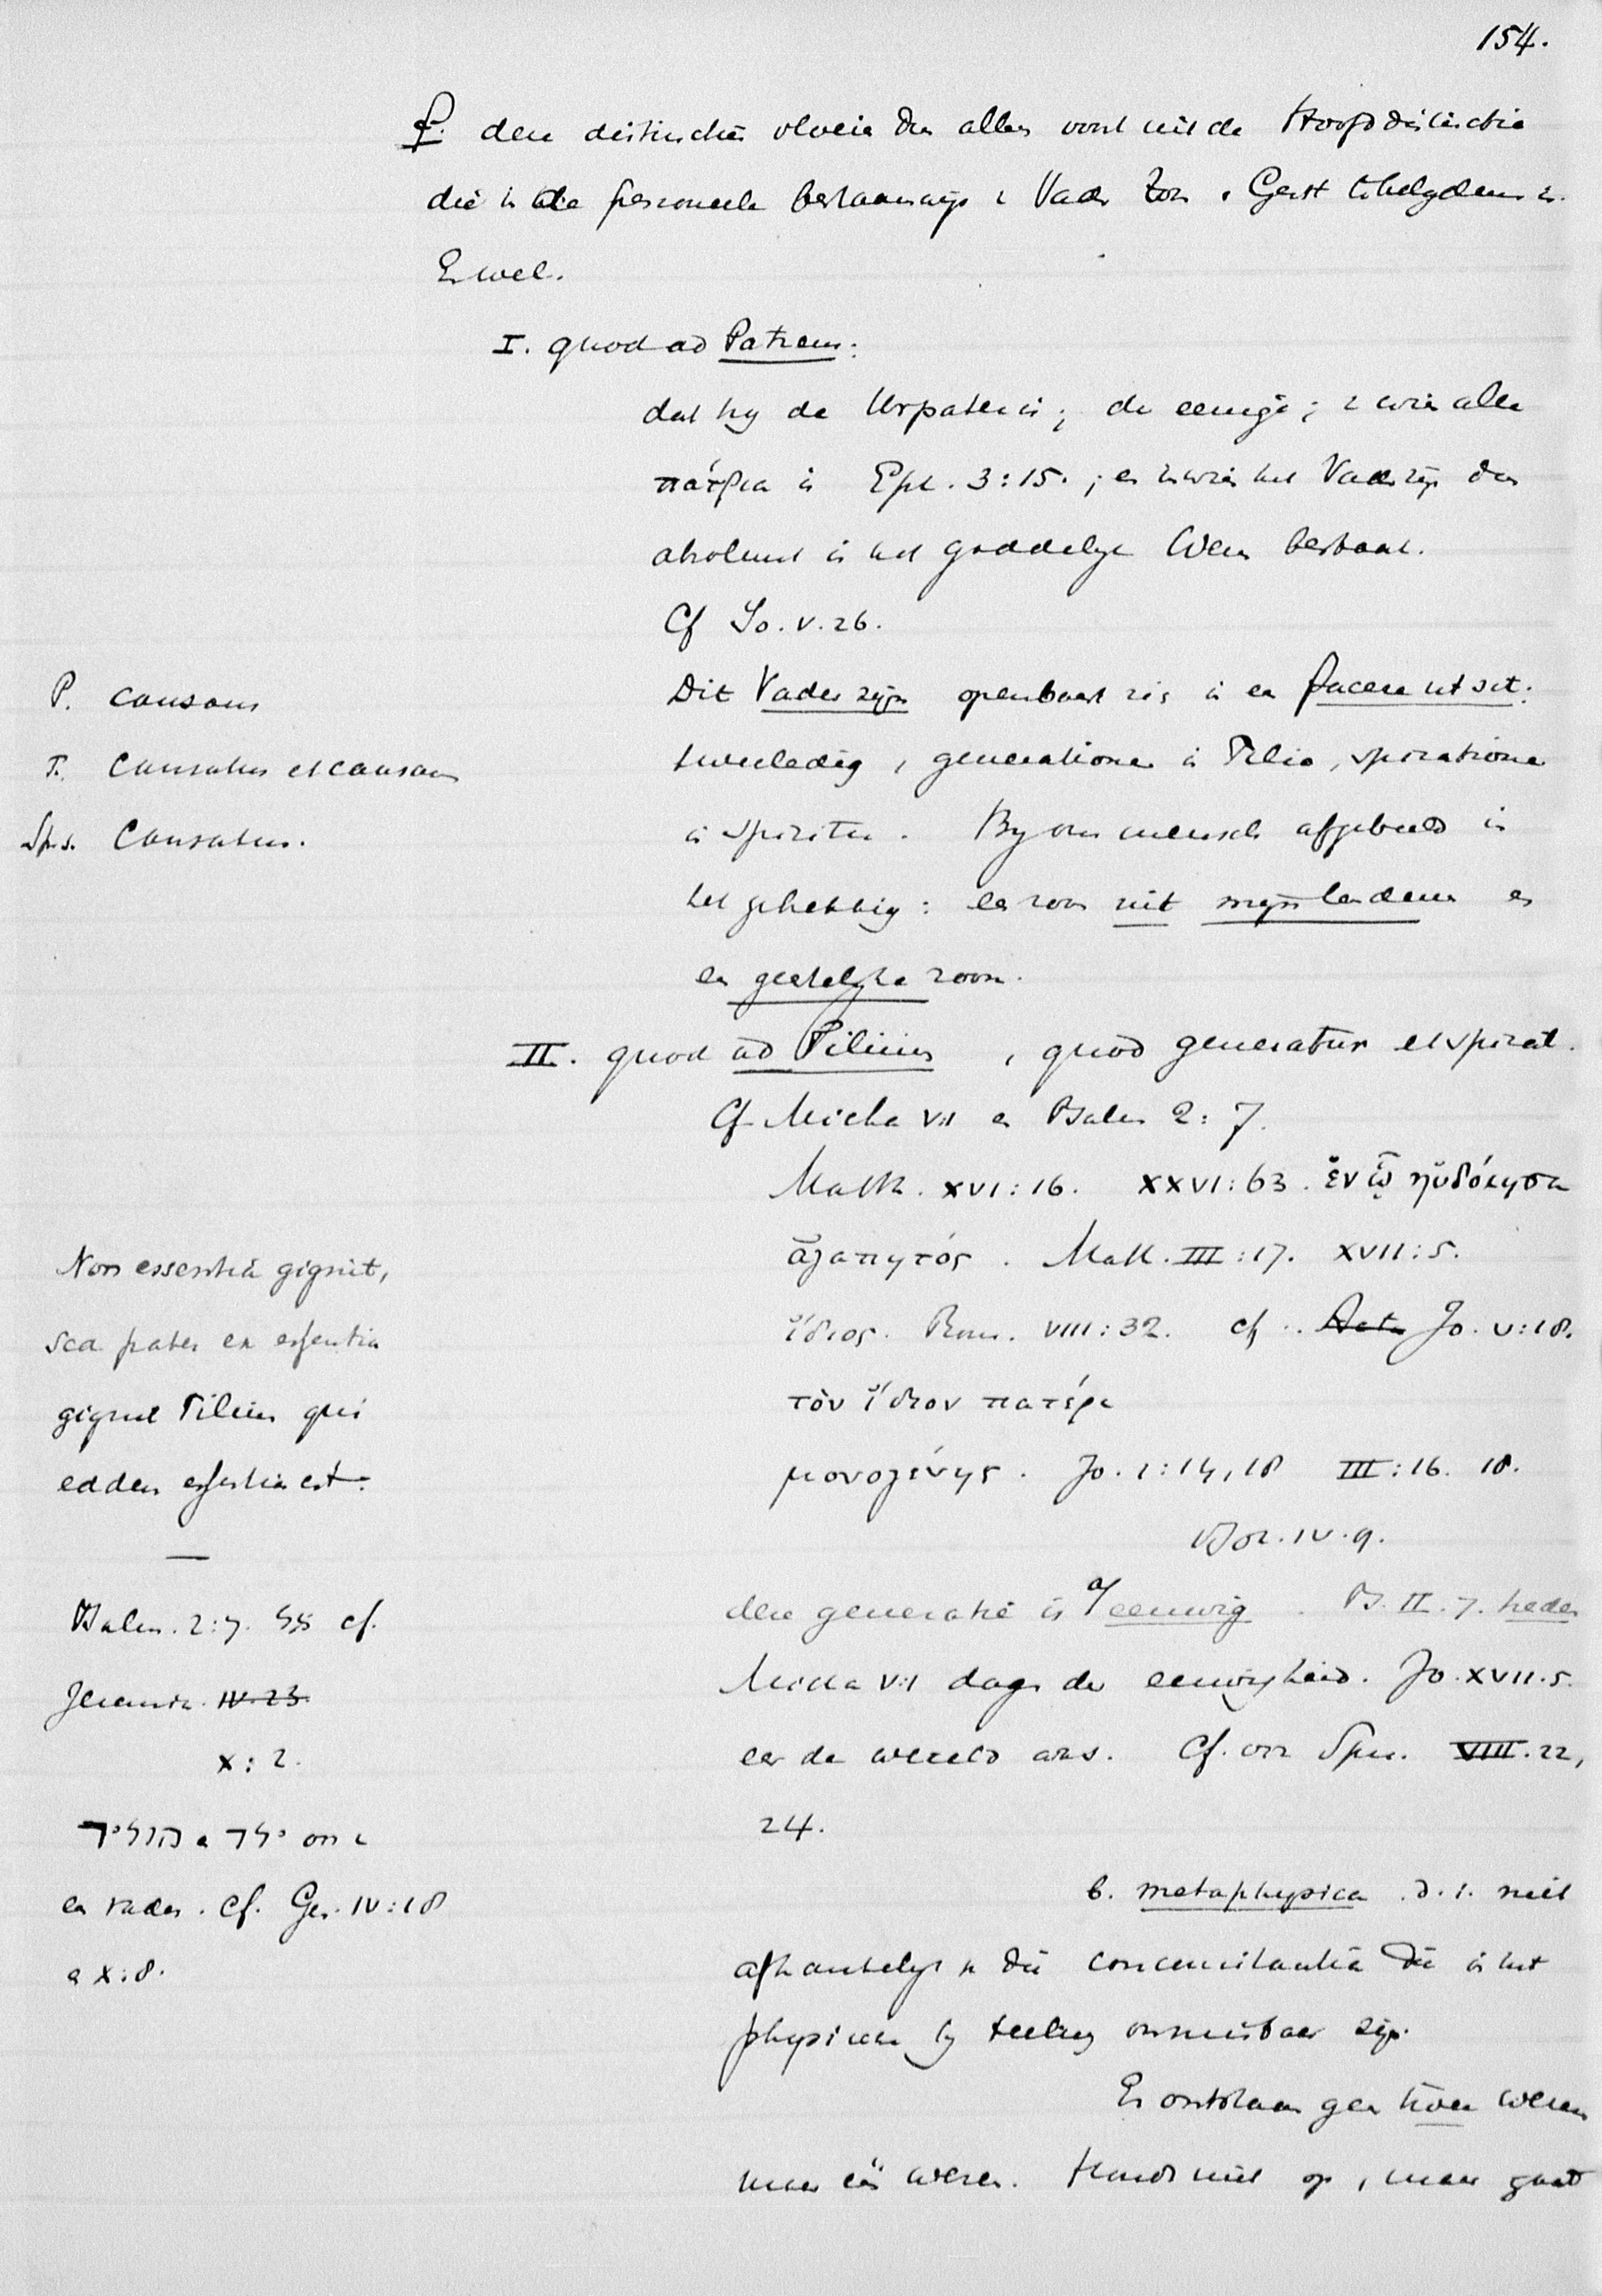 154.
f. deze distincties vloeien dus alle voort uit de Hoofddistinctie
die in de personeele bestaanwijs v Vader Zoon & Geest
En wel.
I. quod ad Patrem:
dat hij de Urpater is; de eenige; in wien alle
πάτρια is Eph. 3:15.; en in wien het Vader zijn dus
absoluut in het goddelijk Wezen bestaat.
Cf Jo. V. 26.
Dit Vader zijn openbaart zig in een facere ut sit:
tweeledig, generatione in Filio, spiratione
in Spiritu. By ons mensch afgebeeld in
het gebrekkig: een zoon uit mijn lendenen en
een geestelyke zoon.
P. causans
F. Causatus et causans
Sp.s. Causatus.
II. quod ad Filium, quod generatur et spirat.
Cf Micha V:1 en Psalm 2:7.
Matth. XVI:16. XXVI:63. ἐν ᾧ ηὐδόκησα
ἀγαπητός. Matt. III:17. XVII:5.
ἴδιος. Rom. VIII:32. cf. Acta Jo. V:18.
τὸν ἴδιον πατέρα
μονογένης. Jo. 1:14,18 III:16. 18.
1 Jo. IV. 9.
Non essentia gignit,
sed pater ex essentia
gignit Filium qui
eadem essentia est.
deze generatie is a/ eeuwig. Ps. II. 7. heden
Micha V:1 dagen der eeuwigheid. Jo. XVII. 5.
eer de wereld was. Cf. ook Spr. VIII. 22,
24.
Psalm. 2:7. cf.
Jeremia. IV. 23
X: 2.
ילד ook v
en vader. Cf. Gen. IV:18
& X:8.
b. metaphysica. d. i. niet
afhankelijk v die concomitantia die in het
physieke bij teeling onmisbaar zijn.
Er ontstaan geen twee wezens
maar één wezen. Houdt niet op, maar gaat